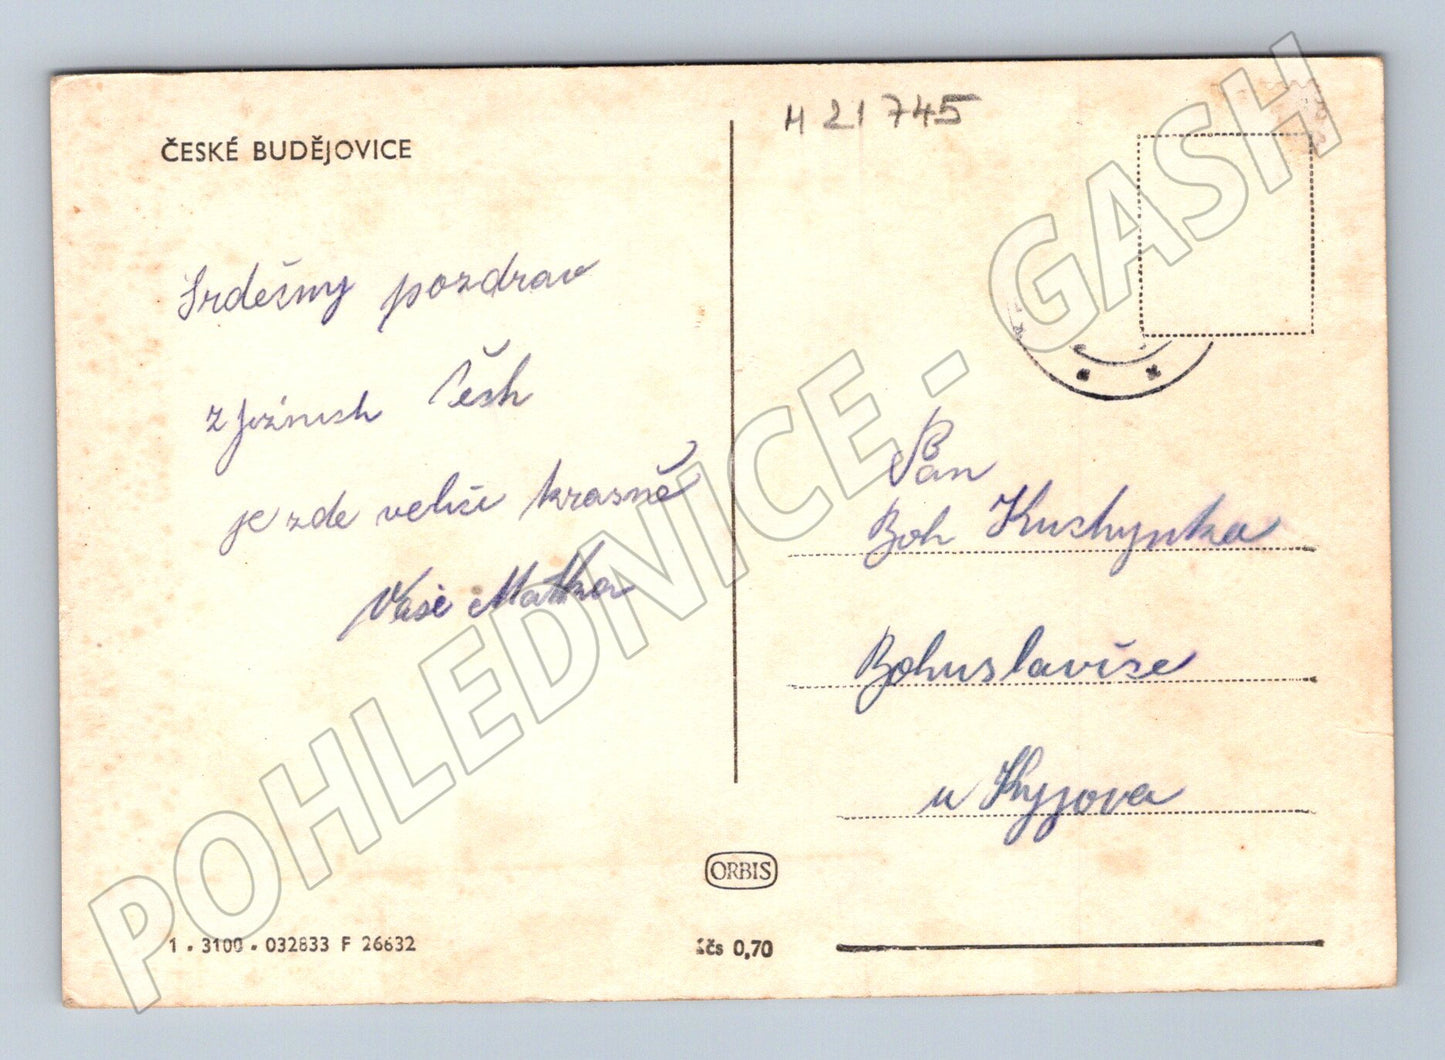 ČESKÉ BUDĚJOVICE
H 21745
Srděšny pozdrav
z Jožnich Čech
je zde velise krasně
Vaše Matka
Pan
Boh Kuchynka
Bohuslavise
u Kyjova
ORBIS
1 . 3100 . 032833 F 26632
Kčs 0,70
POHLEDNICE - GASH